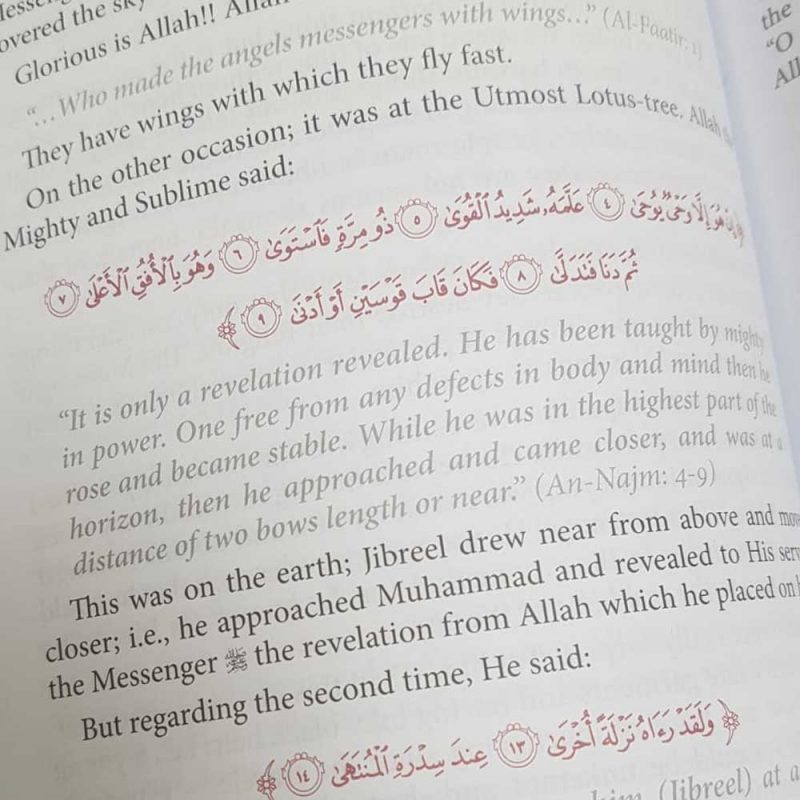 overed the sky
Glorious is Allah!!
“...Who made the angels messengers with wings...” (Al-Faatir: 1)
They have wings with which they fly fast.
On the other occasion; it was at the Utmost Lotus-tree. Allah
Mighty and Sublime said:
إِنْ هُوَ إِلَّا وَحْىٌ يُوحَىٰ ٤ عَلَّمَهُۥ شَدِيدُ ٱلْقُوَىٰ ٥ ذُو مِرَّةٍ فَٱسْتَوَىٰ ٦ وَهُوَ بِٱلْأُفُقِ ٱلْأَعْلَىٰ ٧
ثُمَّ دَنَا فَتَدَلَّىٰ ٨ فَكَانَ قَابَ قَوْسَيْنِ أَوْ أَدْنَىٰ ٩
“It is only a revelation revealed. He has been taught by mighty
in power. One free from any defects in body and mind then he
rose and became stable. While he was in the highest part of the
horizon, then he approached and came closer, and was at a
distance of two bows length or near.” (An-Najm: 4-9)
This was on the earth; Jibreel drew near from above and
closer; i.e., he approached Muhammad and revealed to His
the Messenger ﷺ the revelation from Allah which he placed on
But regarding the second time, He said:
وَلَقَدْ رَءَاهُ نَزْلَةً أُخْرَىٰ ١٣ عِندَ سِدْرَةِ ٱلْمُنتَهَىٰ ١٤
(Jibreel) at a
the
“O